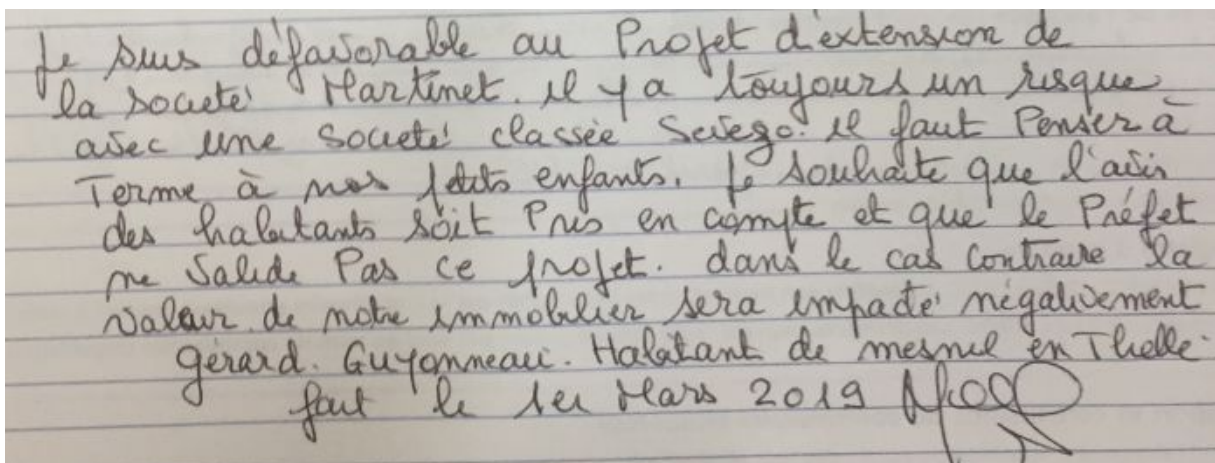 Je suis défavorable au Projet d'extension de
la société Martinet. il y a toujours un risque
avec une société classée Seveso. il faut Penser à
Terme à nos petits enfants. Je souhaite que l'avis
des habitants soit Pris en compte et que le Préfet
ne Valide Pas ce projet. dans le cas contraire la
valeur de notre immobilier sera impacté négativement
gérard. Guyonneau. Habitant de mesnil en Thelle.
fait le 1er Mars 2019